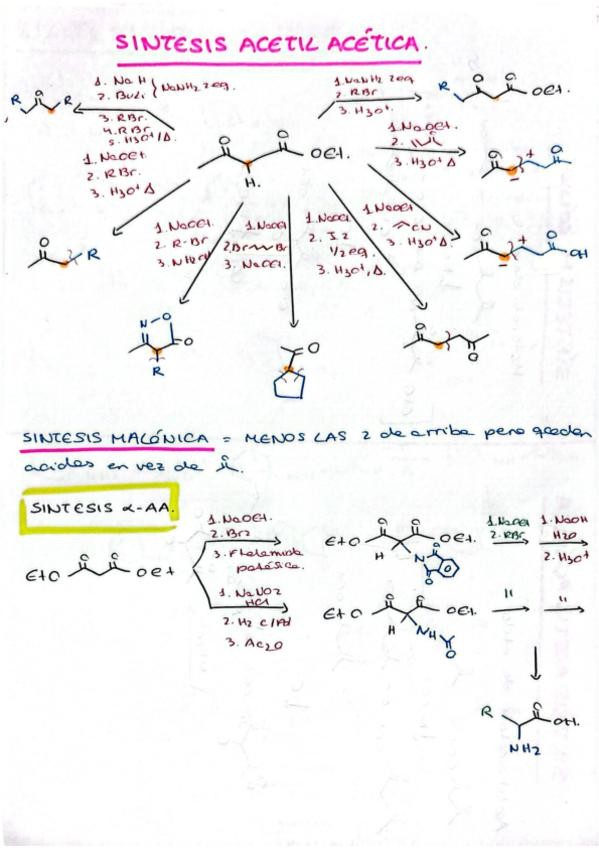 SINTESIS ACETIL ACÉTICA.
1. NaH
2. BuLi
NaNH2 2eq.
3. RBr.
4. RBr
5. H3O+/Δ.
R
O
R
1. NaNH2 2eq
2. RBr
3. H3O+.
R
O
O
OEt.
1. NaOEt.
2. RBr.
3. H3O+ Δ
O
O
OEt.
H.
1. NaOEt.
2.
3. H3O+ Δ
O
+
O
-
O
R
1. NaOEt
2. R-Br
3. NH2OH
1. NaOEt
2. Br Br
3. NaOEt.
1. NaOEt
2. I2
1/2 eq.
3. H3O+, Δ.
1. NaOEt
2. CN
3. H3O+ Δ
O
+
O
OH
-
N-O
O
R
O
O
O
SINTESIS MALÓNICA = MENOS LAS 2 de arriba pero quedan
acidos en vez de
SINTESIS α-AA.
EtO
O
O
OEt
1. NaOEt.
2. Br2
3. Ftalamida
potásica.
EtO
O
O
OEt.
H
N
O
O
1. NaOEt
2. RBr
1. NaOH
H2O
2. H3O+
1. NaNO2
HCl
2. H2 C/Pd
3. Ac2O
EtO
O
O
OEt.
H
NH
O
"
"
R
O
OH.
NH2